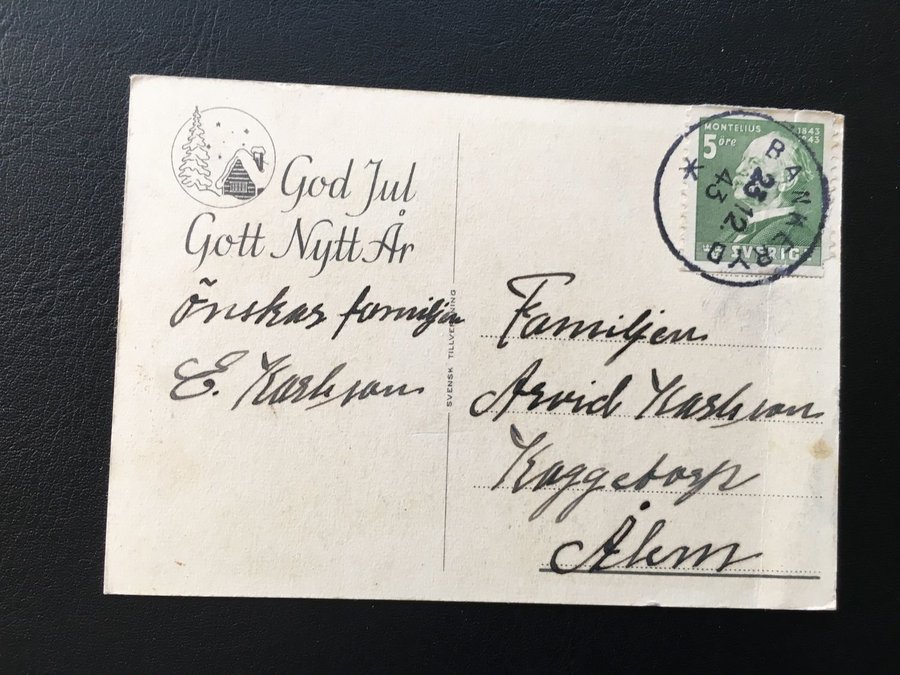 God Jul
Gott Nytt År
önskas familjen
E. Karlsson
SVENSK TILLVERKNING
MONTELIUS
1843
1943
5 öre
SVERIGE
BANKERYD
23 12.
43
Familjen
Arvid Karlsson
Kaggetorp
Ålem